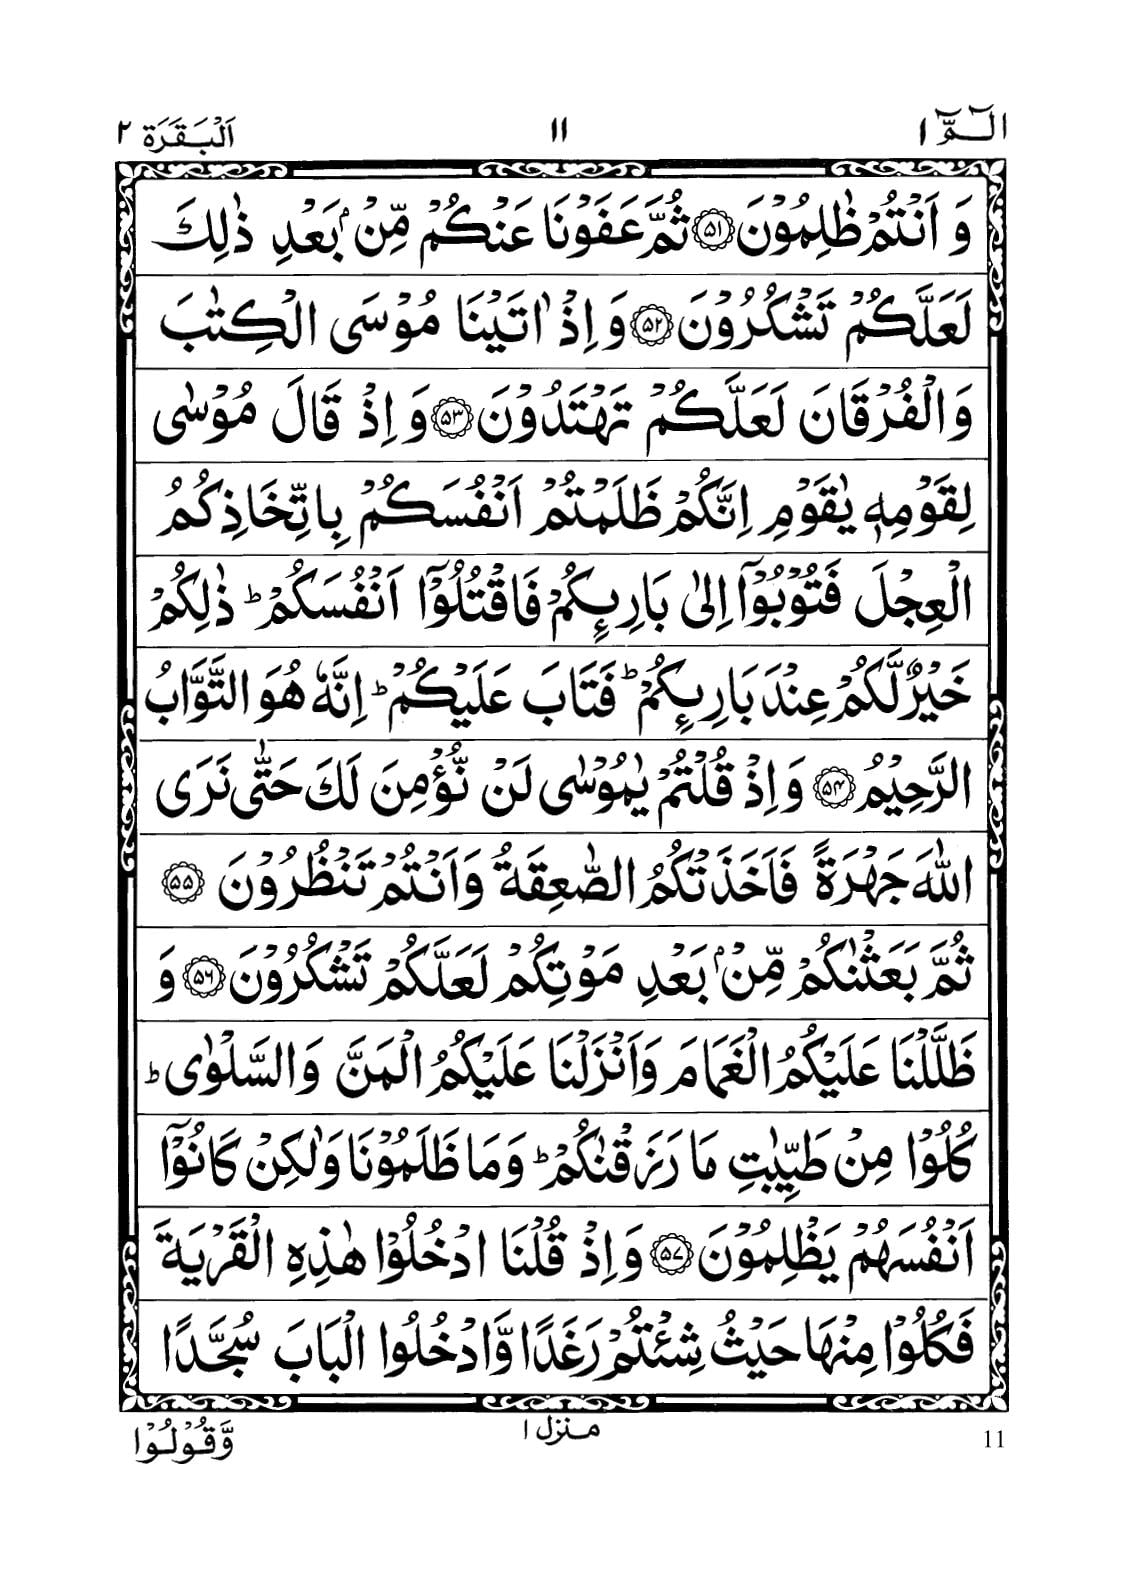 الٓمّٓ ۱ ۱۱ اَلْبَقَرَة ۲
وَ اَنْتُمْ ظٰلِمُوْنَ ۵۱ ثُمَّ عَفَوْنَا عَنْكُمْ مِّنْۢ بَعْدِ ذٰلِكَ
لَعَلَّكُمْ تَشْكُرُوْنَ ۵۲ وَ اِذْ اٰتَيْنَا مُوْسَى الْكِتٰبَ
وَالْفُرْقَانَ لَعَلَّكُمْ تَهْتَدُوْنَ ۵۳ وَ اِذْ قَالَ مُوْسٰى
لِقَوْمِهٖ يٰقَوْمِ اِنَّكُمْ ظَلَمْتُمْ اَنْفُسَكُمْ بِاتِّخَاذِكُمُ
الْعِجْلَ فَتُوْبُوْٓا اِلٰى بَارِىِٕكُمْ فَاقْتُلُوْٓا اَنْفُسَكُمْ ؕ ذٰلِكُمْ
خَيْرٌ لَّكُمْ عِنْدَ بَارِىِٕكُمْ ؕ فَتَابَ عَلَيْكُمْ ؕ اِنَّهٗ هُوَ التَّوَّابُ
الرَّحِيْمُ ۵۴ وَ اِذْ قُلْتُمْ يٰمُوْسٰى لَنْ نُّؤْمِنَ لَكَ حَتّٰى نَرَى
اللّٰهَ جَهْرَةً فَاَخَذَتْكُمُ الصّٰعِقَةُ وَاَنْتُمْ تَنْظُرُوْنَ ۵۵
ثُمَّ بَعَثْنٰكُمْ مِّنْۢ بَعْدِ مَوْتِكُمْ لَعَلَّكُمْ تَشْكُرُوْنَ ۵۶ وَ
ظَلَّلْنَا عَلَيْكُمُ الْغَمَامَ وَاَنْزَلْنَا عَلَيْكُمُ الْمَنَّ وَالسَّلْوٰى ؕ
كُلُوْا مِنْ طَيِّبٰتِ مَا رَزَقْنٰكُمْ ؕ وَمَا ظَلَمُوْنَا وَلٰكِنْ كَانُوْٓا
اَنْفُسَهُمْ يَظْلِمُوْنَ ۵۷ وَ اِذْ قُلْنَا ادْخُلُوْا هٰذِهِ الْقَرْيَةَ
فَكُلُوْا مِنْهَا حَيْثُ شِئْتُمْ رَغَدًا وَّادْخُلُوا الْبَابَ سُجَّدًا
منزل ۱ وَّقُوْلُوْا
11